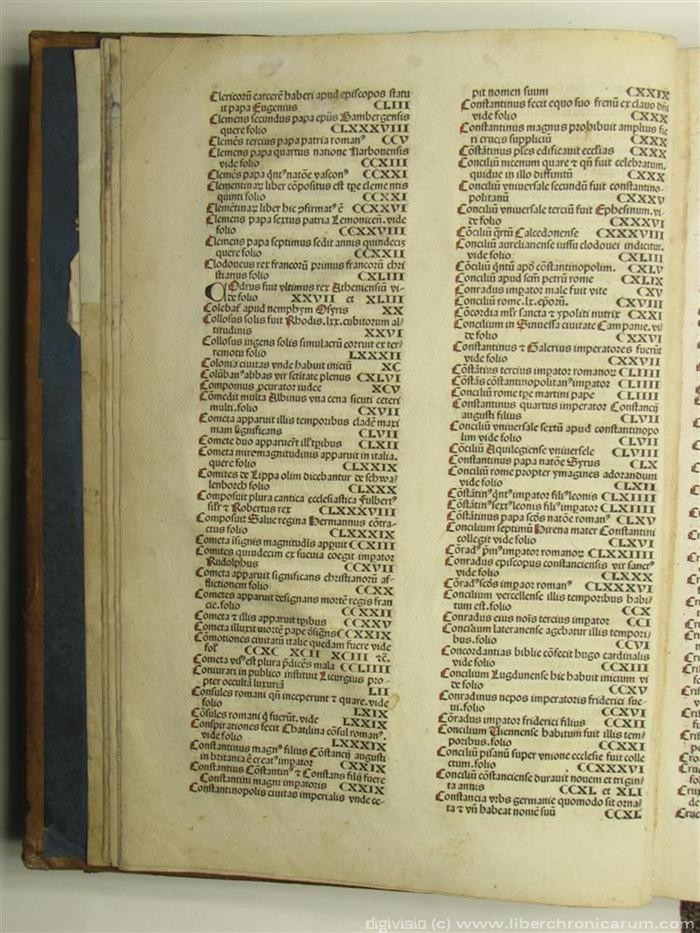 Clericorū carcerē haberi apud episcopos statu
it papa Eugenius CLIII
Clemens secundus papa epūs Bambergensis
quere folio CLXXXVIII
Clemēs tercius papa patria romanꝰ CCV
Clemens papa quartus natione Narbonensis
vide folio CCXIII
Clemēs papa qntꝰ natōne vasconꝰ CCXXI
Clementinaꝝ liber cōpositus est tpe clementis
quinti folio CCXXI
Clemētinaꝝ liber hic ꝯfirmatꝰ ē CCXXVI
Clemens papa sextus patria Lemonicen. vide
folio CCXXVIII
Clemens papa septimus sedit annis quindecis
quere folio CCXXXII
Clodoueus rex francorū primus francorū chri
stianus CXLIII
COdrus fuit vltimus rex Atheniensiū vi-
de folio XXVII et XLIII
apud nemphym Osyris XX
Collosus solis fuit Rhodis.lxx.cubitorum al/
titudinis XXVI
Collosus ingens solis simulacrū corruit ex ter/
remotu folio LXXXII
Colonia ciuitas vnde habuit iniciū XC
Colūbanꝰ abbas vir sctitate plenus CXLVI
Componius ꝓcurator iudee XCV
Comedit multa Albinus vna cena sicuti ceteri
multi.folio CXVII
Cometa apparuit illis temporibus cladē maxi
mam significans CLVII
Comete duo apparuerūt illꝭ tpibus CLXII
Cometa mire magnitudinis apparuit in italia.
quere folio CLXXIX
Comites de Lippa olim dicebantur de schwa/
lenborch folio CLXXX
Composuit plura cantica ecclesiastica Fulbertꝰ
silꝝ et Robertus rex CLXXXVIII
Composuit Salue regina Hermannus cōtra/
ctus folio CLXXXIX
Cometa isignes magnitudis appuit CCXIII
Comites quindecim ex sueuia coegit impator
Rudolphus CCXVII
Cometa apparuit significans christianorū af/
flictionem folio CCXX
Cometes apparuit designans mortē regis fran
cie.folio CCXXII
Cometa et illis apparuit tpibus CCXXV
Cometa illuxit mortē pape dsigns CCXXIX
Cōmotiones ciuitatū italie quedam fuere vide
folꝰ CCXC XCII XCIII etc.
Cometa visꝰ est plura pdicēs mala CCLIIII
Coniurari in publico instituit Licurgius pro/
pter occultā luxuriā LII
Consules romani qn inceperunt et quare.vide
folio LXIX
Cōsules romani q fuerūt.vide LXXIX
Conspiratio fecit Chatilina cōsul romanꝰ.
vide folio LXXXIX
Constantinus magnꝰ filius Cōstancij augusti
in britania ē creatꝰ impator CXXIX
Constantius Cōstantinꝰ et Constans filij fuere
Constantini magni impatoris CXXIX
Constantinopolis ciuitas imperialis vnde ce-
pit nomen suum CXXIX
Constantinus fecit equo suo frenū ex clauo dni
vide folio CXXX
Constantinus magnus prohibuit amplius fie
ri crucis suppliciū CXXX
Cōstātinus pses edificauit ecclias CXXX
Conciliū nicenum quare et qn fuit celebratum.
quidue in illo diffinitū CXXX
Conciliū vniuersale secundū fuit constantino-
politanū CXXXV
Conciliū vniuersale terciū fuit Ephesinum.vi-
de folio CXXXVI
Cōciliū qrtū Calcedonense CXXXVIII
Conciliū aurelianense iussu clodouei indicitur.
vide folio CXLIII
Cōciliū qntū apō cōstantinopolim. CXLV
Conciliū apud scm petrū rome CXLIX
Conradus impator male fuit vite CXV
Conciliū rome.lx.eporū. CXVIII
Cōcordia mlr sancta et ypoliti nutrix CXXI
Concilium in Sinuessa ciuitate Campanie.vi/
de folio CXXVI
Constantinus et Galerius imperatores fuerūt
vide folio CXXVII
Cōstātius tercius impator romanoꝝ CLIIII
Cōstās cōstantinopolitanꝰ impator CLIIII
Conciliū rome tpe martini pape CLIIII
Constantinus quartus imperator Constancij
augusti filius CLVII
Conciliū vniuersale sextū apud constantinopo
lim vide folio CLVII
Cōciliū Aquilegiense vniuersele CLVIII
Constantinus papa natōe Syrus CLX
Conciliū rome propter ymagines adorandum
vide folio CLXII
Cōstātinꝰ qntꝰ impator filꝰ leonis CLXIIII
Cōstātinꝰ sextꝰ leonis filꝰ impator CLXIIII
Cōstātinus papa scds natōe romanꝰ CLXV
Concilium septimū Hirena mater Constantini
collegit vide folio CLXVI
Cōradꝰ pmꝰ impator romanoꝝ CLXXIIII
Conradus episcopus constanciensis vir sanctꝰ
vide folio CLXXX
Cōradꝰ scds impator romanꝰ CLXXXVI
Concilium vercellense illis temporibus habi/
tum est.folio CCX
Conradus eius nois tercius impator CCI
Concilium lateranense agebatur illis tempori/
bus.folio CCVI
Concordantias biblie cōfecit hugo cardinalis
vide folio CCXIII
Concilium Lugdunense hic habuit inicium vi
de folio CCXV
Conradinus nepos imperatoris friderici fue-
ui.folio CCXVI
Cōradus impator friderici filius CCXII
Concilium Viennense habitum fuit illis tem/
poribus.folio CCXXI
Conciliū pisanū super vnione ecclesie fuit colle
ctum.folio CCXXXVI
Conciliū cōstanciense durauit nouem et trigin/
ta annis CCXL et XLI
Constancia vrbs germanie quomodo sit orna/
ta et vn habeat nomē suū CCXL
digivisio (c) www.liberchronicarum.com